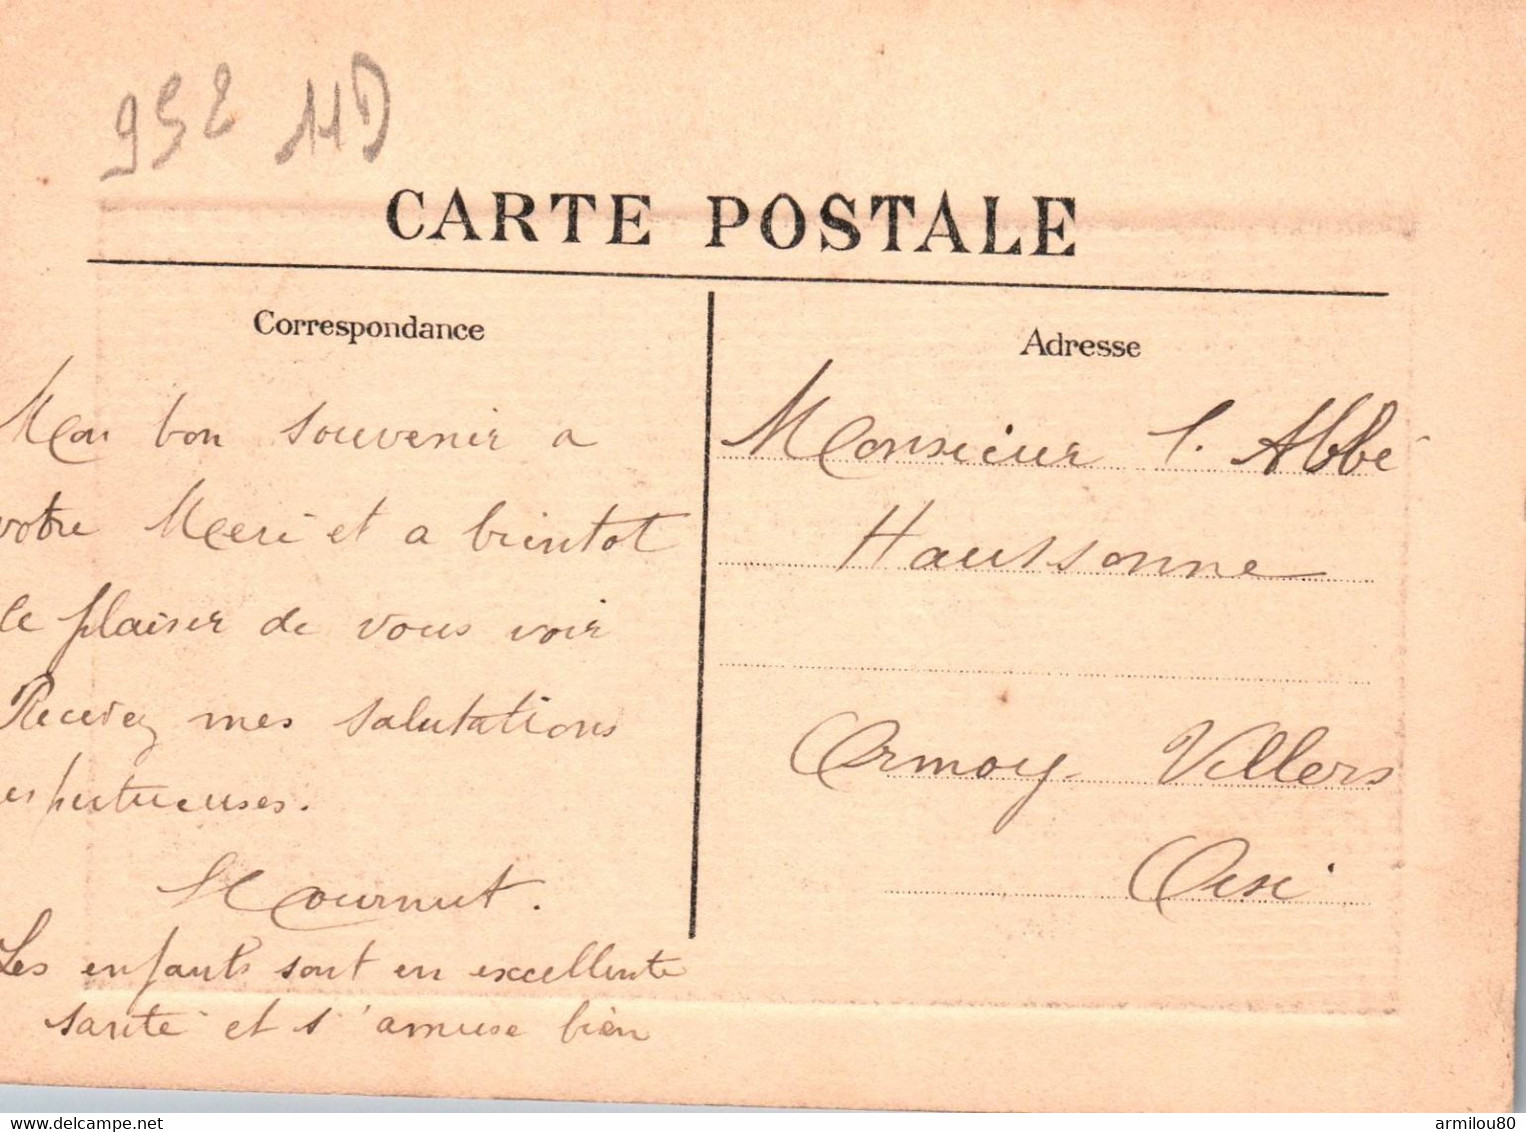 952 11D
CARTE POSTALE
Correspondance
Adresse
Mon bon souvenir a
votre Meré et a bientot
le plaiser de vous voir
Recevez mes salutations
espectueuses.
Les enfants sont en excellente
santé et s'amuse bien
Monsieur l. Abbé
Haussonne
Ormoy Villers
Oise
delcampe.net
armilou80